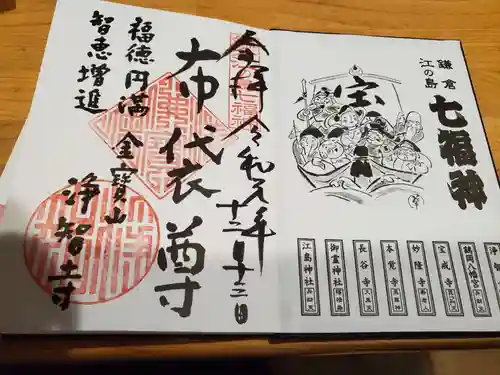 奉拝 令和元年十二月十三日
布袋尊
福徳円満
智恵増進
金寳山
浄智寺
鎌倉
江の島
七福神
宝
鶴岡八幡宮
宝戒寺
妙隆寺
本覚寺
長谷寺
御霊神社
江島神社